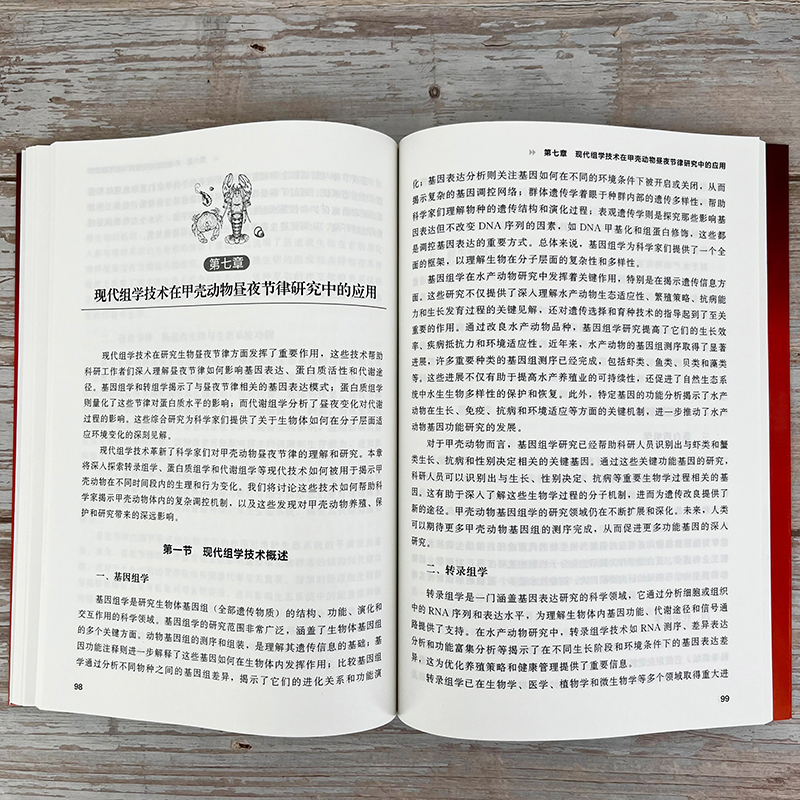 第七章
现代组学技术在甲壳动物昼夜节律研究中的应用
现代组学技术在研究生物昼夜节律方面发挥了重要作用，这些技术帮助
科研工作者们深入理解昼夜节律如何影响基因表达、蛋白质活性和代谢途
径。基因组学和转组学揭示了与昼夜节律相关的基因表达模式；蛋白质组学
则量化了这些节律对蛋白质水平的影响；而代谢组学分析了昼夜变化对代谢
过程的影响。这些综合研究为科学家们提供了关于生物体如何在分子层面适
应环境变化的深刻见解。
现代组学技术革新了科学家们对甲壳动物昼夜节律的理解和研究。本章
将深入探索转录组学、蛋白质组学和代谢组学等现代技术如何被用于揭示甲
壳动物在不同时间段内的生理和行为变化。我们将讨论这些技术如何帮助科
学家揭示甲壳动物体内的复杂调控机制，以及这些发现对甲壳动物养殖、保
护和研究带来的深远影响。
第一节 现代组学技术概述
一、基因组学
基因组学是研究生物体基因组（全部遗传物质）的结构、功能、演化和
交互作用的科学领域。基因组学的研究范围非常广泛，涵盖了生物体基因组
的多个关键方面。动物基因组的测序和组装，是理解其遗传信息的基础；基
因功能注释则进一步解释了这些基因如何在生物体内发挥作用；比较基因组
学通过分析不同物种之间的基因组差异，揭示了它们的进化关系和功能演
98
第七章 现代组学技术在甲壳动物昼夜节律研究中的应用
化；基因表达分析则关注基因如何在不同的环境条件下被开启或关闭，从而
揭示复杂的基因调控网络；群体遗传学着眼于种群内部的遗传多样性，帮助
科学家们理解物种的遗传结构和演化过程；表观遗传学则是探究那些影响基
因表达但不改变DNA序列的因素，如DNA甲基化和组蛋白修饰，这些都
是调控基因表达的重要方式。总体来说，基因组学为科学家们提供了一个全
面的框架，以理解生物在分子层面的复杂性和多样性。
基因组学在水产动物研究中发挥着关键作用，特别是在揭示遗传信息方
面。这些研究不仅提供了深入理解水产动物生态适应性、繁殖策略、抗病能
力和生长发育过程的关键见解，还对遗传选择和育种技术的指导起到了至关
重要的作用。通过改良水产动物品种，基因组学研究提高了它们的生长效
率、疾病抵抗力和环境适应性。近年来，水产动物的基因组测序取得了显著
进展，许多重要种类的基因组测序已经完成，包括虾类、鱼类、贝类和藻类
等。这些进展不仅有助于提高水产养殖业的可持续性，还促进了自然生态系
统中水生生物多样性的保护和恢复。此外，特定基因的功能分析揭示了水产
动物在生长、免疫、抗病和环境适应等方面的关键机制，进一步推动了水产
动物基因功能研究的发展。
对于甲壳动物而言，基因组学研究已经帮助科研人员识别出与虾类和蟹
类生长、抗病和性别决定相关的关键基因。通过这些关键功能基因的研究，
科研人员可以识别出与生长、性别决定、抗病等重要生物学过程相关的基
因。这有助于深入了解这些生物学过程的分子机制，进而为遗传改良提供了
新的途径。甲壳动物基因组学的研究领域仍在不断扩展和深化。未来，人类
可以期待更多甲壳动物基因组的测序完成，从而促进更多功能基因的深入
研究。
二、转录组学
转录组学是一门涵盖基因表达研究的科学领域，它通过分析细胞或组织
中的RNA序列和表达水平，为理解生物体内基因功能、代谢途径和信号通
路提供了支持。在水产动物研究中，转录组学技术如RNA测序、差异表达
分析和功能富集分析等揭示了在不同生长阶段和环境条件下的基因表达差
异，这为优化养殖策略和健康管理提供了重要信息。
转录组学已在生物学、医学、植物学和微生物学等多个领域取得重大进
99